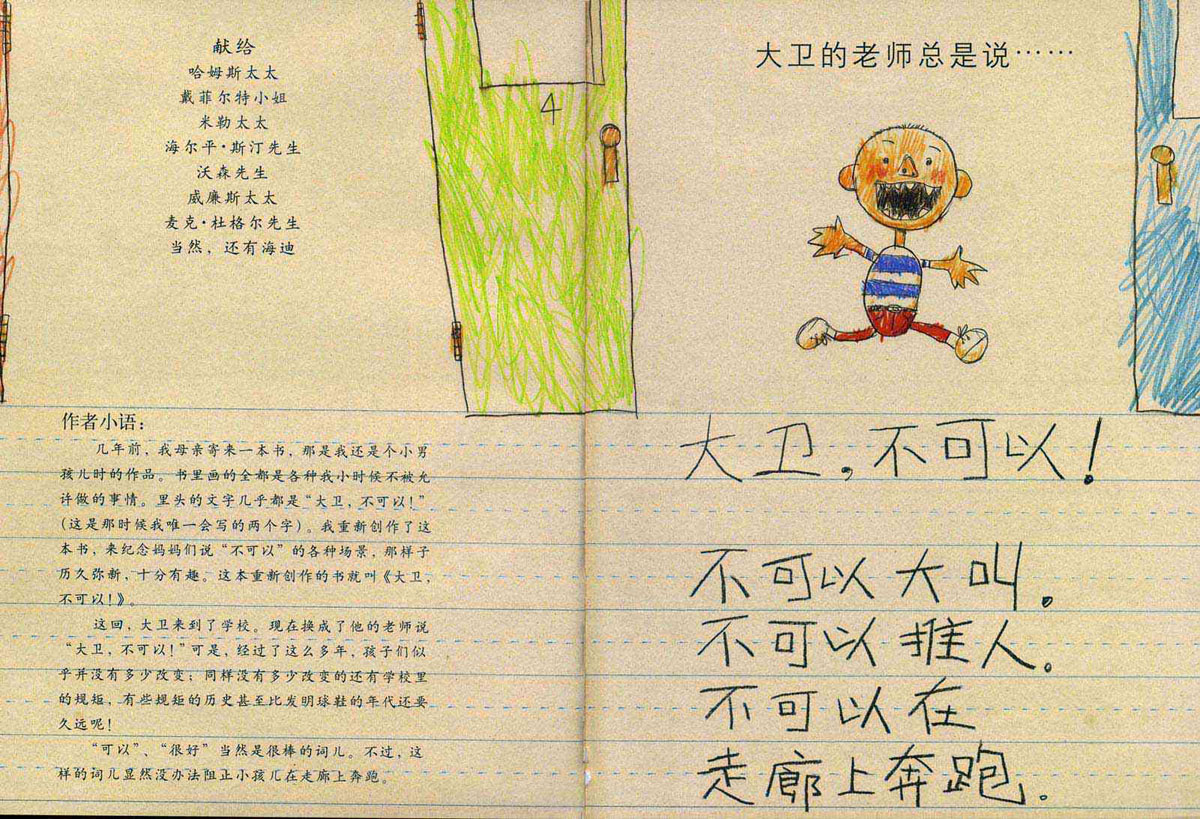 献给
哈姆斯太太
戴菲尔特小姐
米勒太太
海尔平·斯汀先生
沃森先生
威廉斯太太
麦克·杜格尔先生
当然，还有海迪
作者小语：
几年前，我母亲寄来一本书，那是我还是个小男
孩儿时的作品。书里画的全都是各种我小时候不被允
许做的事情。里头的文字几乎都是“大卫，不可以！”
（这是那时候我唯一会写的两个字）。我重新创作了这
本书，来纪念妈妈们说“不可以”的各种场景，那样子
历久弥新，十分有趣。这本重新创作的书就叫《大卫，
不可以！》。
这回，大卫来到了学校。现在换成了他的老师说
“大卫，不可以！”可是，经过了这么多年，孩子们似
乎并没有多少改变；同样没有多少改变的还有学校里
的规矩，有些规矩的历史甚至比发明球鞋的年代还要
久远呢！
“可以”、“很好”当然是很棒的词儿。不过，这
样的词儿显然没办法阻止小孩儿在走廊上奔跑。
4
大卫的老师总是说……
大卫，不可以！
不可以大叫。
不可以推人。
不可以在
走廊上奔跑。